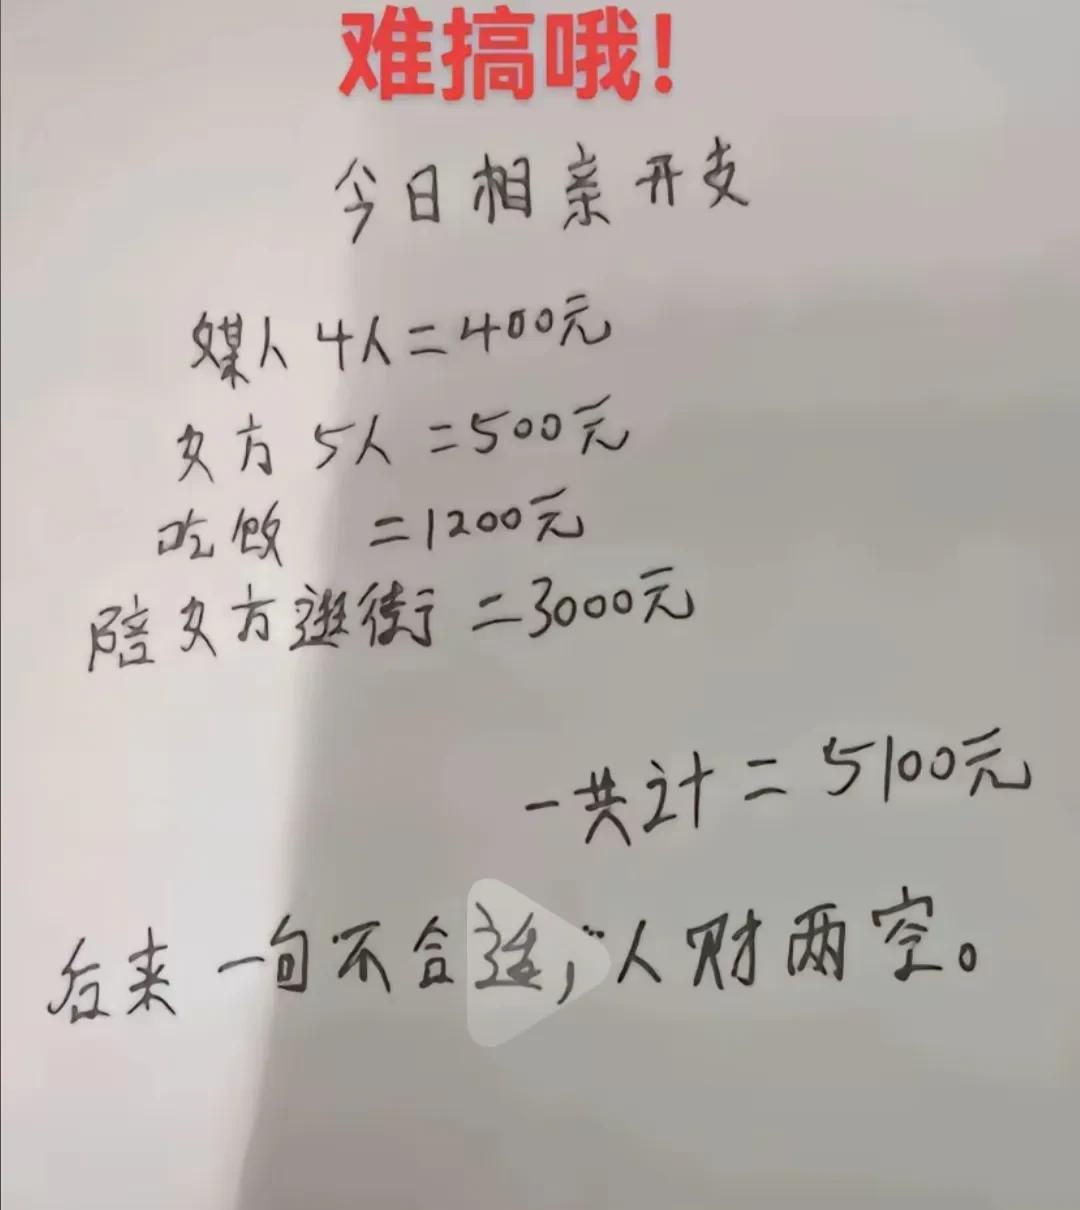 难搞哦!
今日相亲开支
媒人4人=400元
女方5人=500元
吃饭 =1200元
陪女方逛街=3000元
一共计=5100元
后来一句不合适,人财两空。